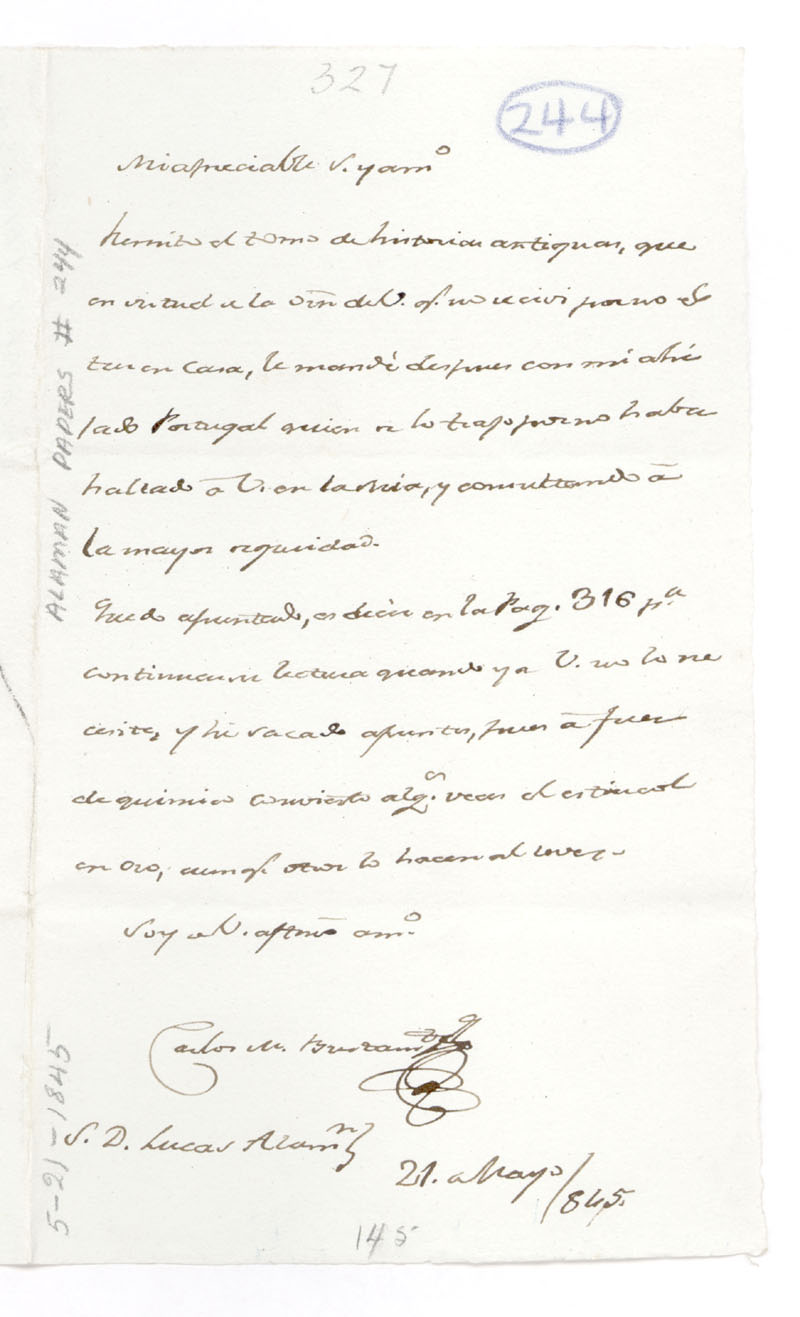 327
244
Mi apreciable S. y amº
Remito el tomo de historias antiguas, que
en virtud de la orn de V. q. no recivi por no es
tar en Casa, le mandé despues con mi ahi
jado Portugal quien se lo trajo por no haber
hallado à V. en la Suia, y consultando à
la mayor seguridad.
Quedo apuntado, es decir en la Pag. 316 pª
continuar su lectura quando ya V. no lo ne
cesite, y hé sacado apuntes, pues à fuer
de quimico convierto algs. veces el estiercol
en oro, aunq. otros lo hacen al revez.
Soy de V. aftmo amº
Carlos M. Bustamte
S. D. Lucas Alamn
21. de Mayo/845.
145
ALAMAN PAPERS # 244
5-21-1845